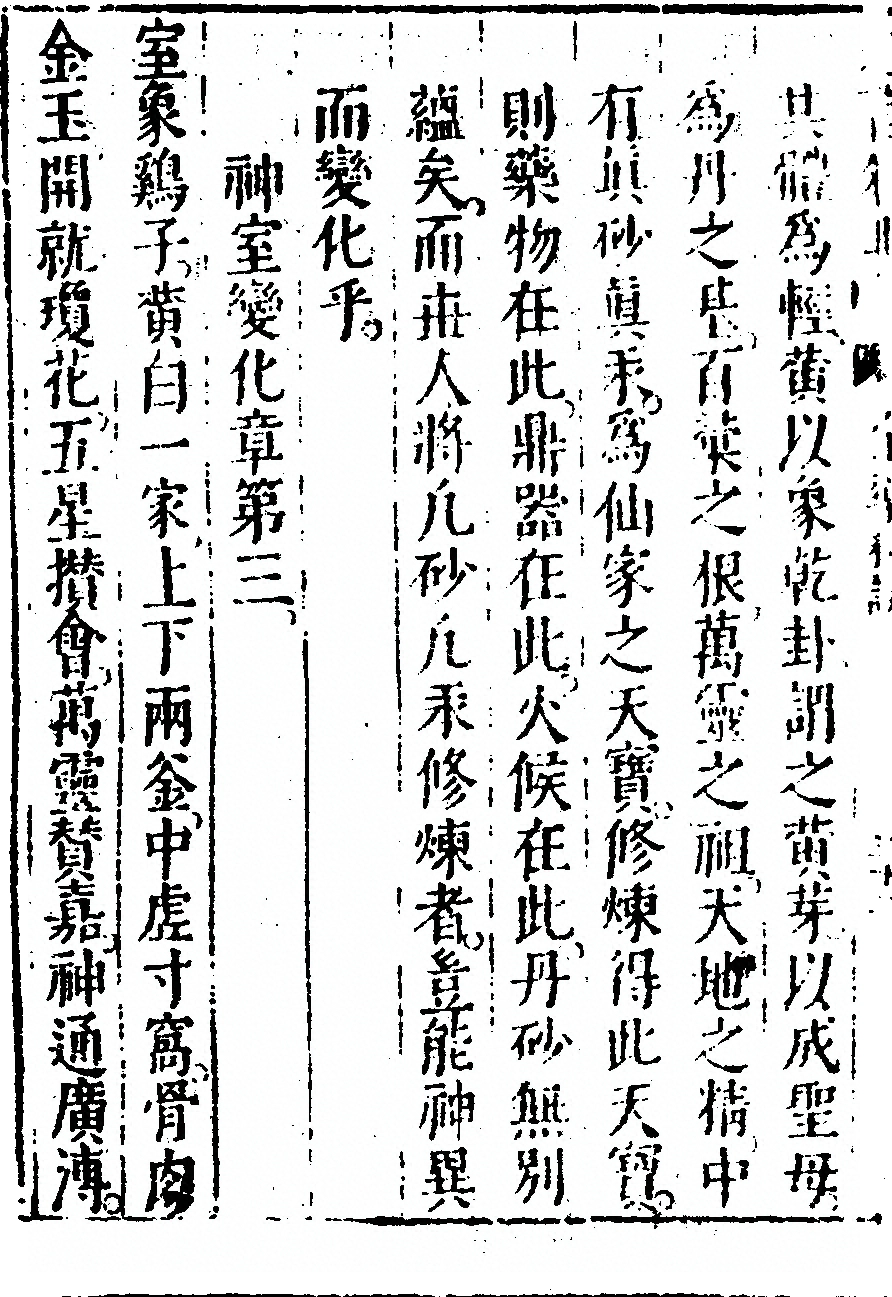 其體爲輕黃以象乾卦謂之黃芽以成聖母
爲丹之基百藥之根萬靈之祖天地之精中
有眞砂眞汞爲仙家之天寶修煉得此天寶
則藥物在此鼎器在此火候在此丹砂無別
蘊矣而世人將凡砂凡汞修煉者豈能神異
而變化乎
神室變化章第三
室象鷄子黃白一家上下兩釜中虛寸窩骨肉
金玉開就瓊花五星攢會萬靈贊嘉神通廣溥